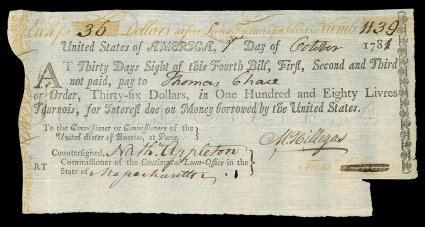 Exch. for 36 Dollars at five Livres Tournois Dollar, Numb. 1139
United States of AMERICA, Day of October 1781
AT Thirty Days Sight of this Fourth Bill, First, Second and Third
not paid, pay to Thomas Chace
or Order, Thirty-six Dollars, in One Hundred and Eighty Livres
Tournois, for Interest due on Money borrowed by the United States.
To the Commissioner or Commissioners of the
United States of America, at Paris.
M. Hillegas
Countersigned, Nath. Appleton
Commissioner of the Continental Loan-Office in the
RT
State of Massachusetts